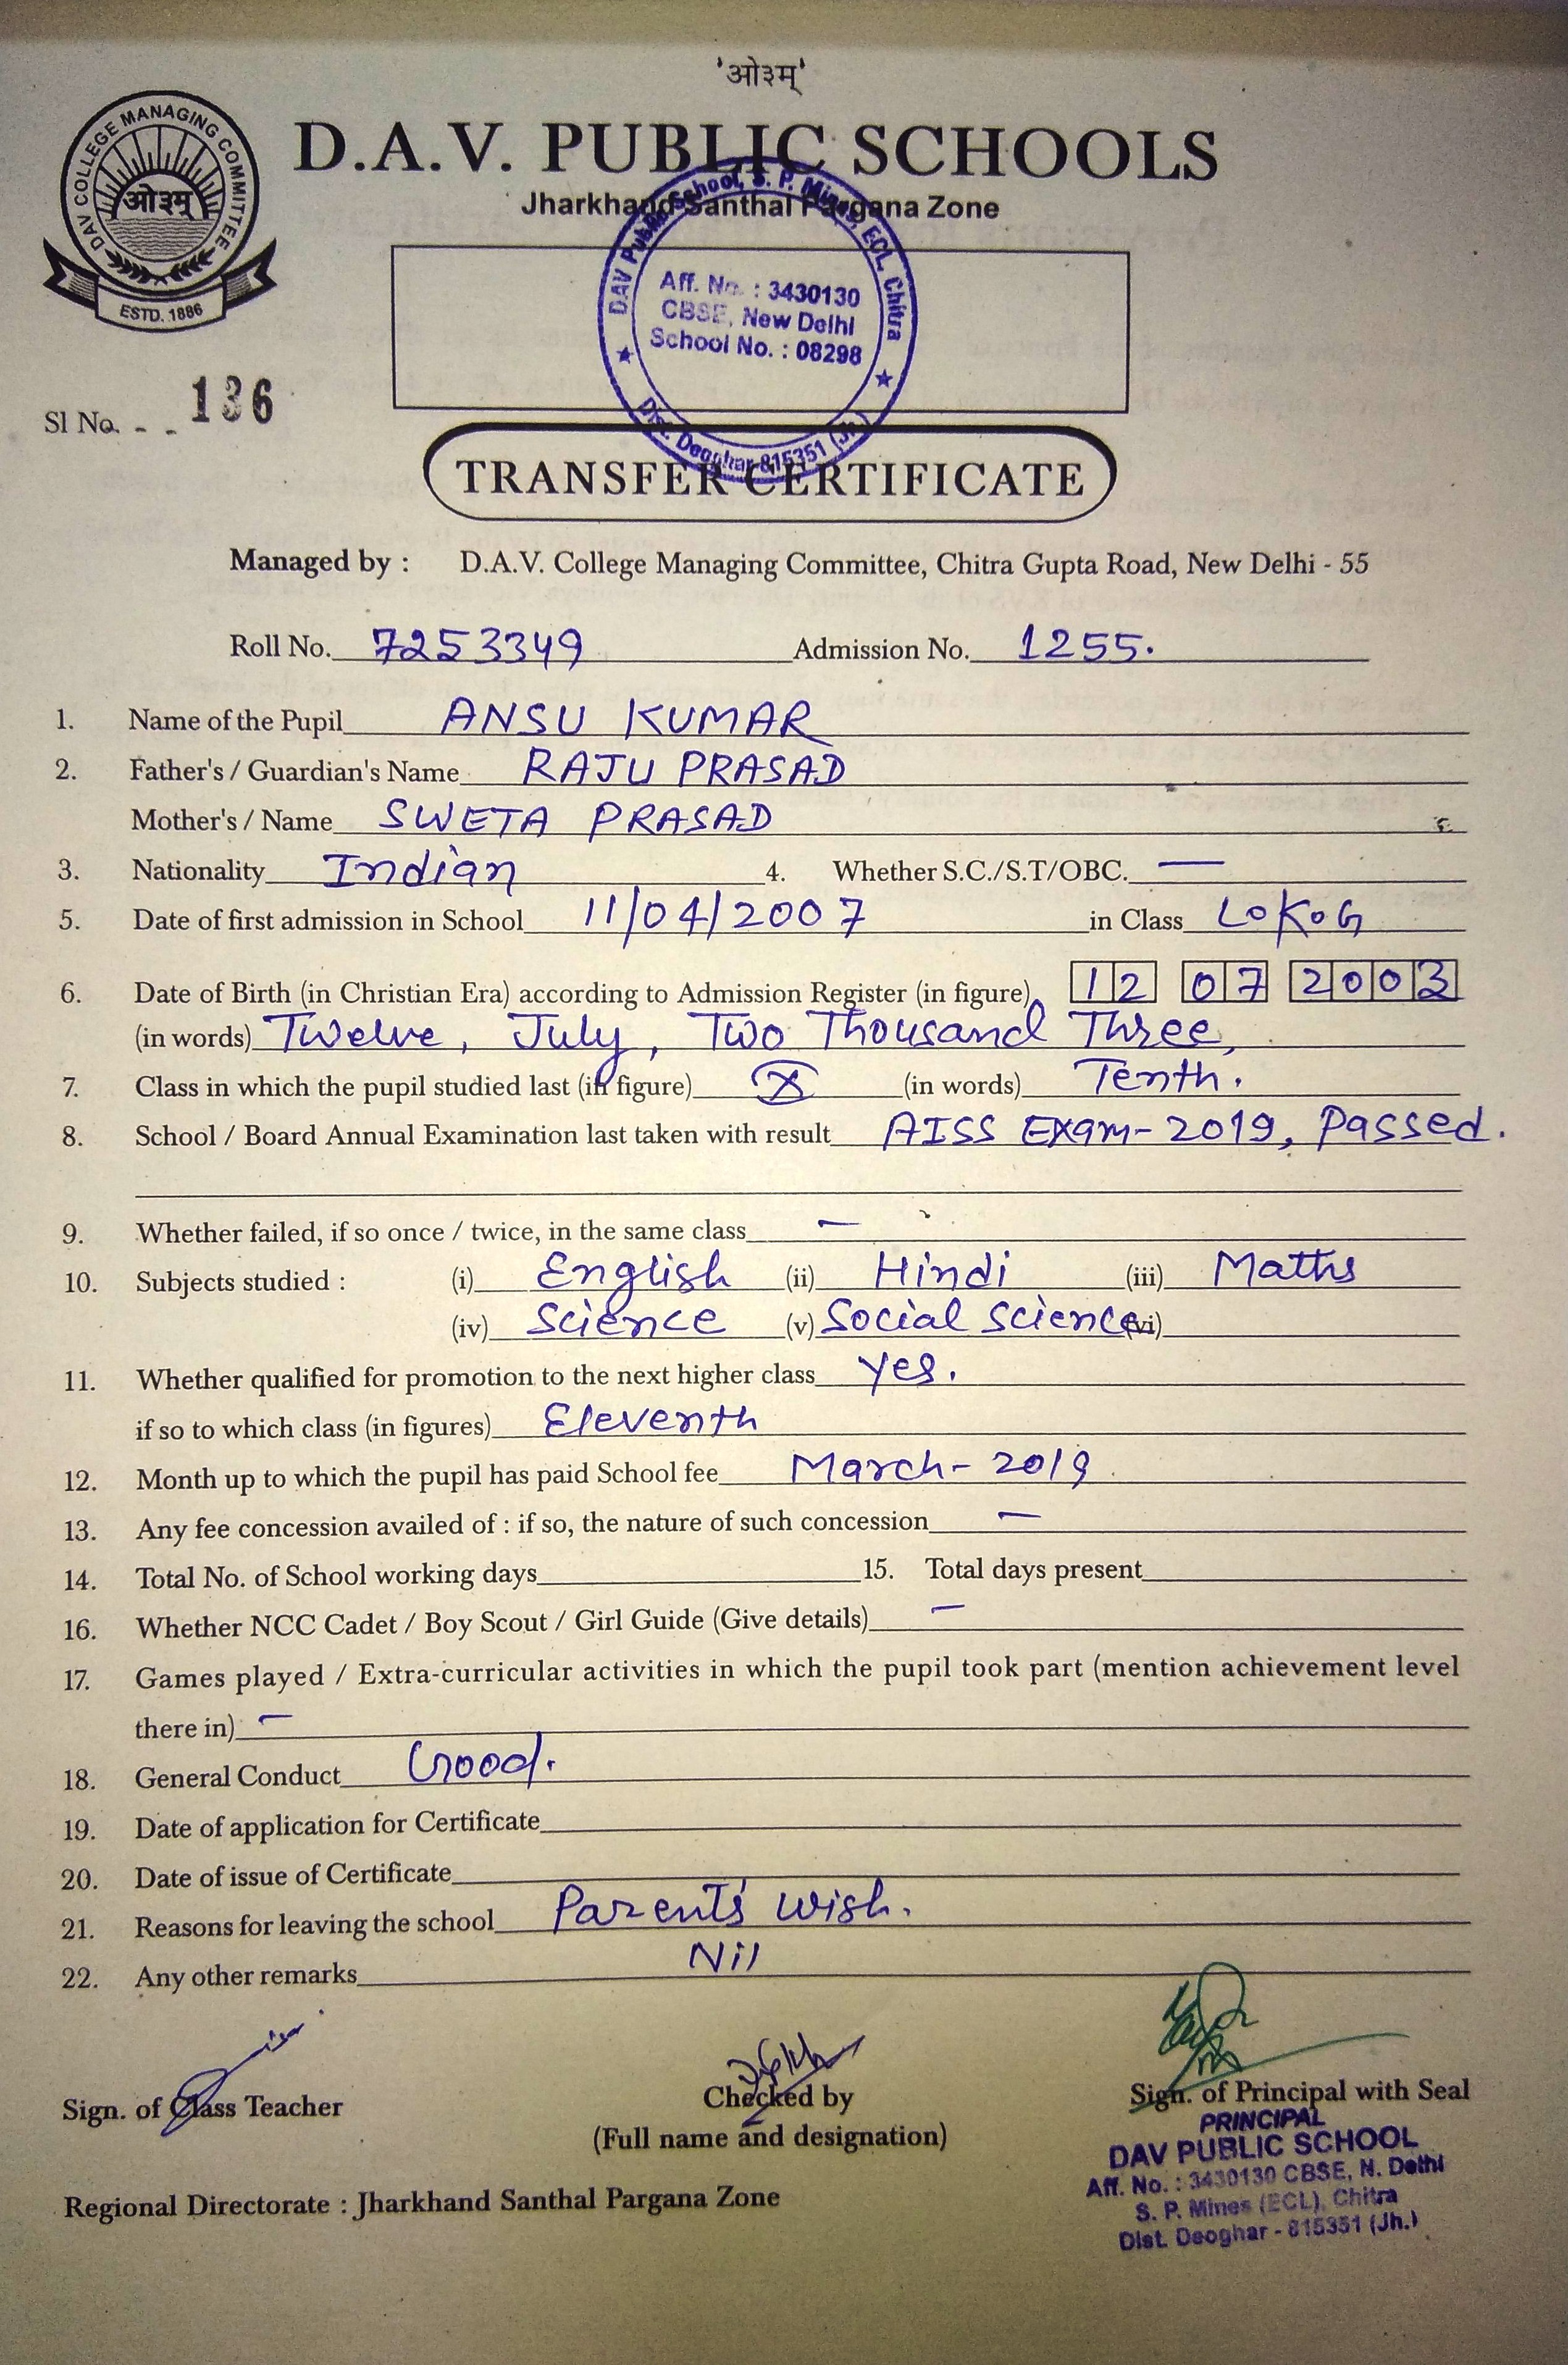 'ओ३म्'
DAV COLLEGE MANAGING COMMITTEE
ओ३म्
ESTD. 1886
D.A.V. PUBLIC SCHOOLS
Jharkhand Santhal Pargana Zone
DAV Public School, S. P. Mines, ECL, Chitra
Aff. No. : 3430130
CBSE, New Delhi
School No. : 08298
Dist. Deoghar-815351 (Jh.)
Sl No. - - 136
TRANSFER CERTIFICATE
Managed by : D.A.V. College Managing Committee, Chitra Gupta Road, New Delhi - 55
Roll No. 7253349 Admission No. 1255.
1. Name of the Pupil ANSU KUMAR
2. Father's / Guardian's Name RAJU PRASAD
Mother's / Name SWETA PRASAD
3. Nationality Indian 4. Whether S.C./S.T/OBC. —
5. Date of first admission in School 11/04/2007 in Class LoKoG
6. Date of Birth (in Christian Era) according to Admission Register (in figure) 12 07 2003
(in words) Twelve, July, Two Thousand Three,
7. Class in which the pupil studied last (in figure) X (in words) Tenth.
8. School / Board Annual Examination last taken with result AISS Exam-2019, Passed.
9. Whether failed, if so once / twice, in the same class —
10. Subjects studied : (i) English (ii) Hindi (iii) Maths
(iv) Science (v) Social Science (vi)
11. Whether qualified for promotion to the next higher class Yes.
if so to which class (in figures) Eleventh
12. Month up to which the pupil has paid School fee March-2019
13. Any fee concession availed of : if so, the nature of such concession —
14. Total No. of School working days 15. Total days present
16. Whether NCC Cadet / Boy Scout / Girl Guide (Give details) —
17. Games played / Extra-curricular activities in which the pupil took part (mention achievement level
there in) —
18. General Conduct Good.
19. Date of application for Certificate
20. Date of issue of Certificate
21. Reasons for leaving the school Parent's Wish.
22. Any other remarks Nil
Sign. of Class Teacher Checked by Sign. of Principal with Seal
(Full name and designation)
PRINCIPAL
DAV PUBLIC SCHOOL
Aff. No. : 3430130 CBSE, N. Delhi
S. P. Mines (ECL), Chitra
Dist. Deoghar - 815351 (Jh.)
Regional Directorate : Jharkhand Santhal Pargana Zone